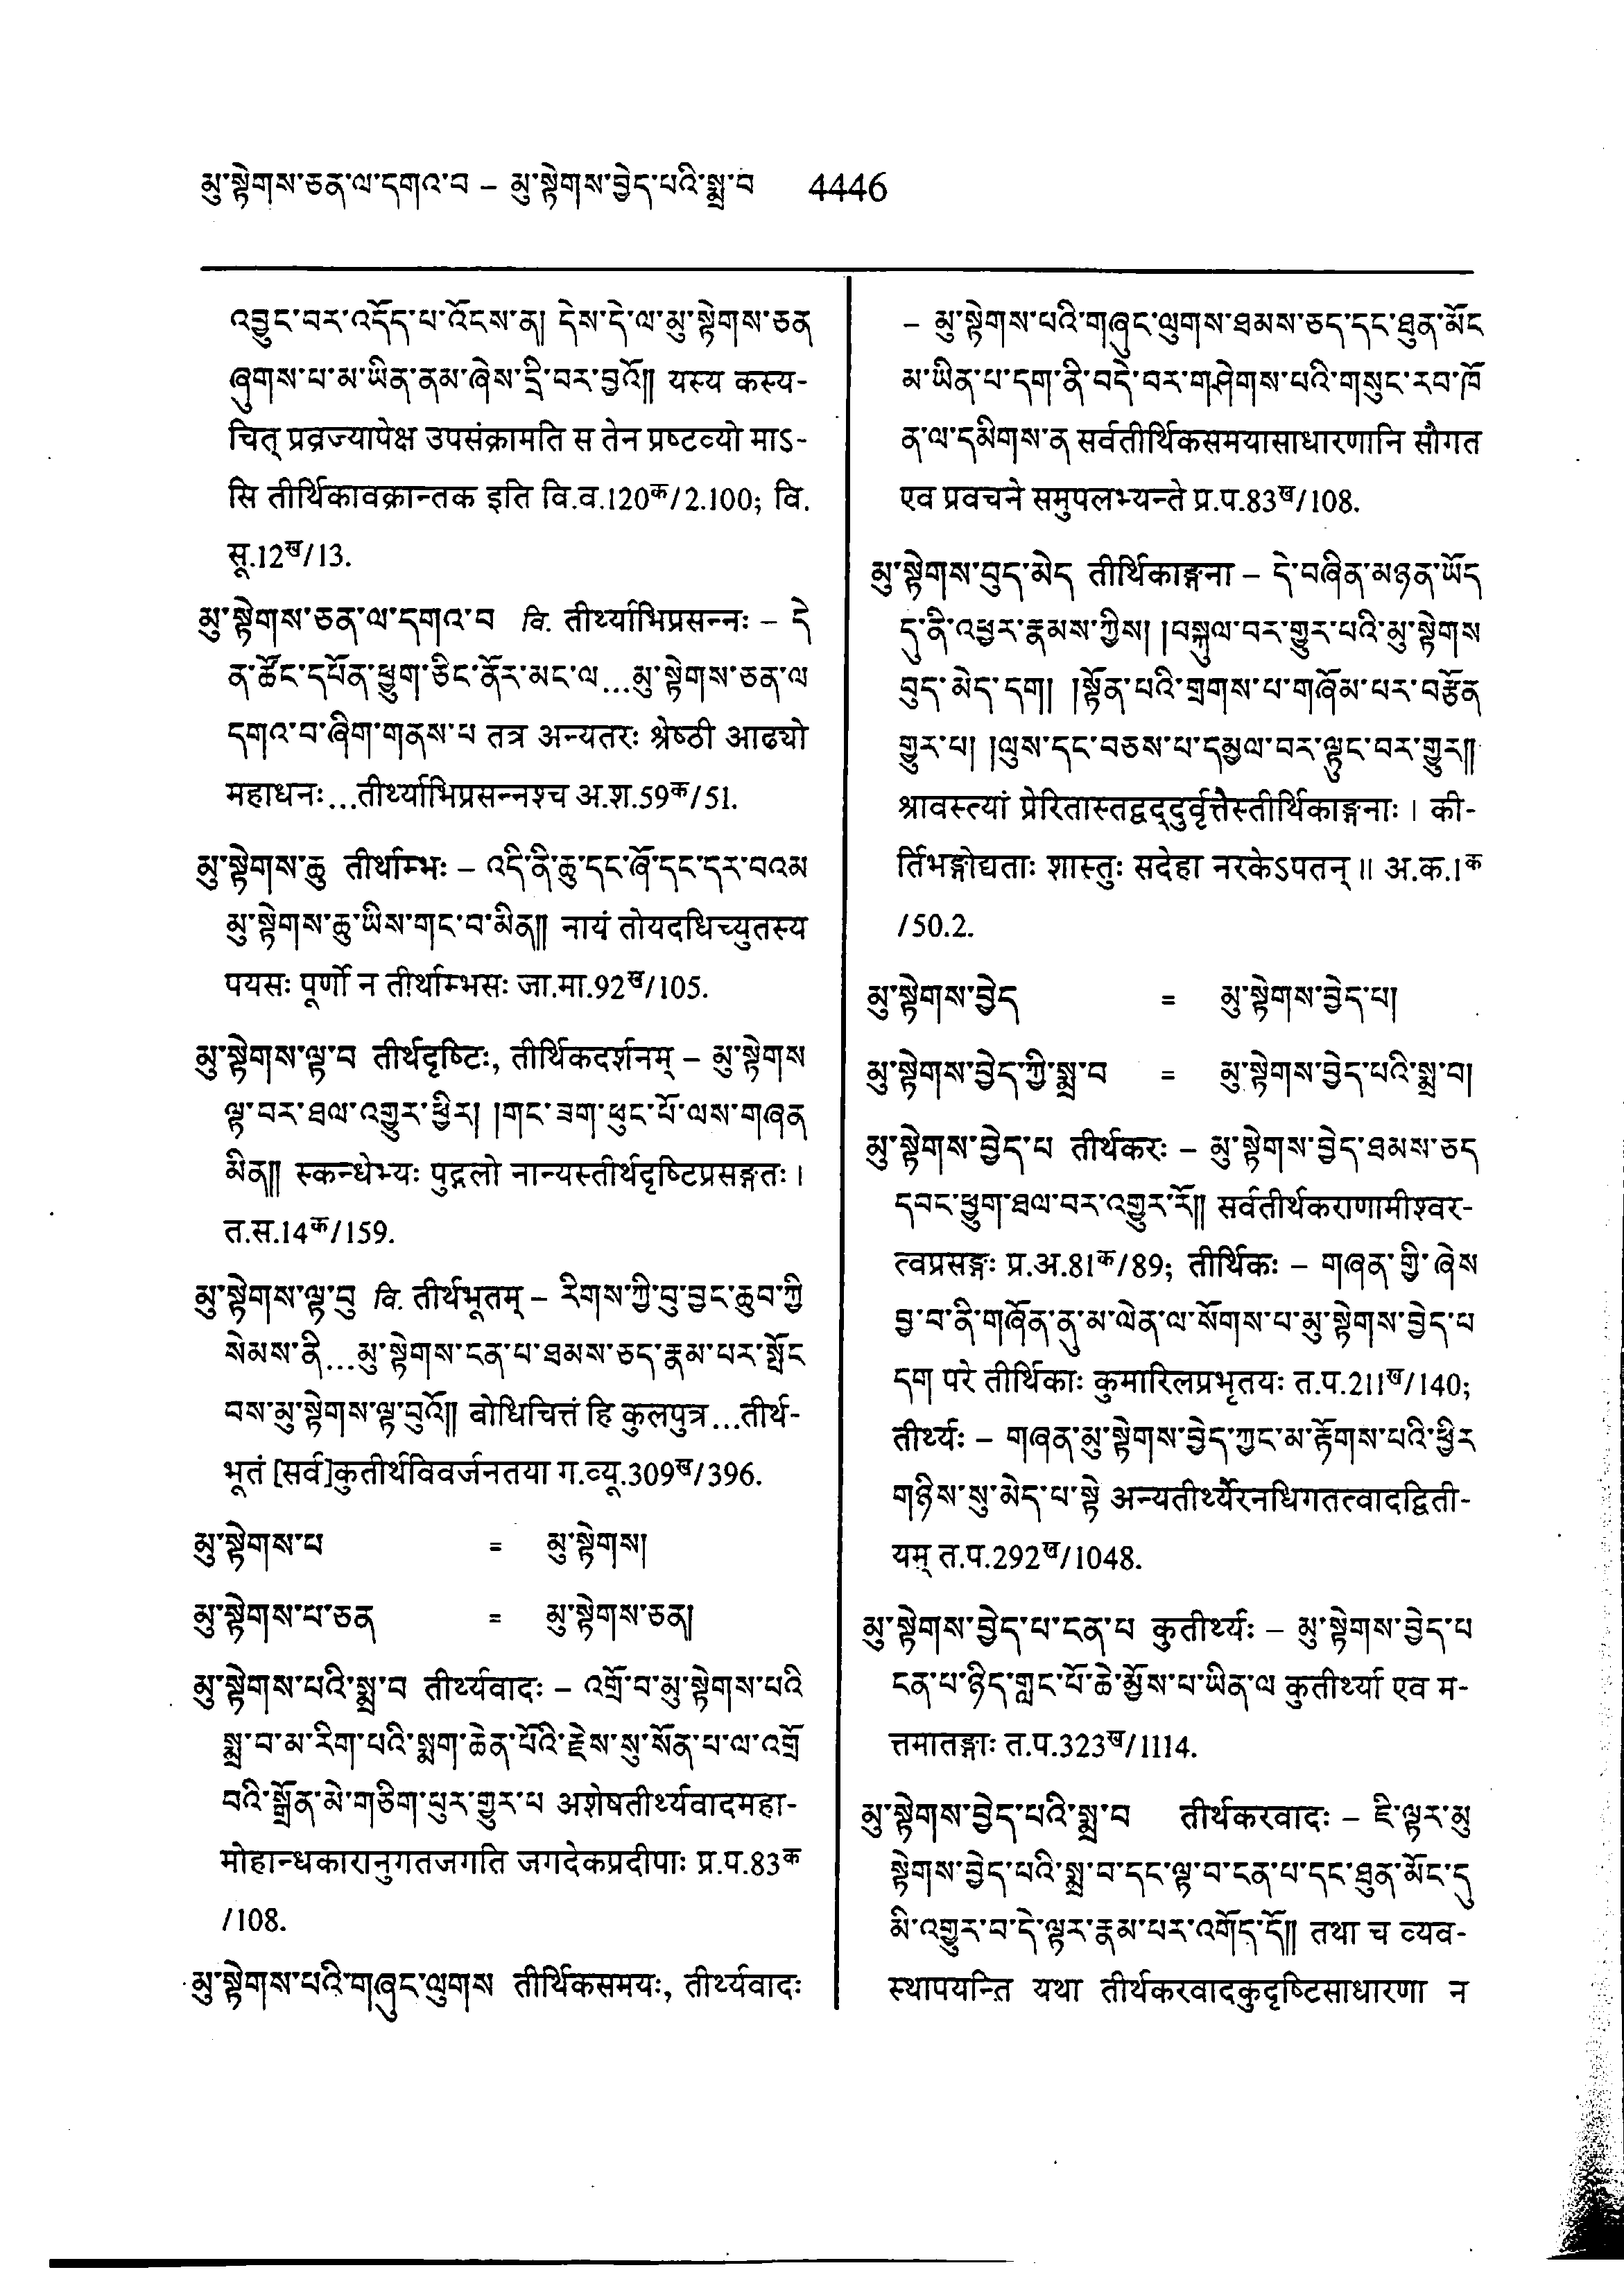 མུ་སྟེགས་ཅན་ལ་དགའ་བ – མུ་སྟེགས་བྱེད་པའི་སྨྲ་བ 4446
འབྱུང་བར་འདོད་པ་འོངས་ན། དེས་དེ་ལ་མུ་སྟེགས་ཅན
ཞུགས་པ་མ་ཡིན་ནམ་ཞེས་དྲི་བར་བྱའོ༎ यस्य कस्य-
चित् प्रव्रज्यापेक्ष उपसंक्रामति स तेन प्रष्टव्यो माऽ-
सि तीर्थिकावक्रान्तक इति वि.व.120क/2.100; वि.
सू.12ख/13.
མུ་སྟེགས་ཅན་ལ་དགའ་བ वि. तीर्थ्याभिप्रसन्नः – དེ
ན་ཚོང་དཔོན་ཕྱུག་ཅིང་ནོར་མང་ལ...མུ་སྟེགས་ཅན་ལ
དགའ་བ་ཞིག་གནས་པ तत्र अन्यतरः श्रेष्ठी आढ्यो
महाधनः...तीर्थ्याभिप्रसन्नश्च अ.श.59क/51.
མུ་སྟེགས་ཆུ तीर्थाम्भः – འདི་ནི་ཆུ་དང་ཞོ་དང་དར་བའམ
མུ་སྟེགས་ཆུ་ཡིས་གང་བ་མིན༎ नायं तोयदधिच्युतस्य
पयसः पूर्णो न तीर्थाम्भसः जा.मा.92ख/105.
མུ་སྟེགས་ལྟ་བ तीर्थदृष्टिः, तीर्थिकदर्शनम् – མུ་སྟེགས
ལྟ་བར་ཐལ་འགྱུར་ཕྱིར། །གང་ཟག་ཕུང་པོ་ལས་གཞན
མིན༎ स्कन्धेभ्यः पुद्गलो नान्यस्तीर्थदृष्टिप्रसङ्गतः ।
त.स.14क/159.
མུ་སྟེགས་ལྟ་བུ वि. तीर्थभूतम् – རིགས་ཀྱི་བུ་བྱང་ཆུབ་ཀྱི
སེམས་ནི...མུ་སྟེགས་ངན་པ་ཐམས་ཅད་རྣམ་པར་སྤོང
བས་མུ་སྟེགས་ལྟ་བུའོ༎ बोधिचित्तं हि कुलपुत्र...तीर्थ-
भूतं [सर्व]कुतीर्थविवर्जनतया ग.व्यू.309ख/396.
མུ་སྟེགས་པ = མུ་སྟེགས།
མུ་སྟེགས་པ་ཅན = མུ་སྟེགས་ཅན།
མུ་སྟེགས་པའི་སྨྲ་བ तीर्थ्यवादः – འགྲོ་བ་མུ་སྟེགས་པའི
སྨྲ་བ་མ་རིག་པའི་སྨག་ཆེན་པོའི་རྗེས་སུ་སོན་པ་ལ་འགྲོ
བའི་སྒྲོན་མེ་གཅིག་པུར་གྱུར་པ अशेषतीर्थ्यवादमहा-
मोहान्धकारानुगतजगति जगदेकप्रदीपाः प्र.प.83क
/108.
མུ་སྟེགས་པའི་གཞུང་ལུགས तीर्थिकसमयः, तीर्थ्यवादः
– མུ་སྟེགས་པའི་གཞུང་ལུགས་ཐམས་ཅད་དང་ཐུན་མོང
མ་ཡིན་པ་དག་ནི་བདེ་བར་གཤེགས་པའི་གསུང་རབ་ཁོ
ན་ལ་དམིགས་ན सर्वतीर्थिकसमयासाधारणानि सौगत
एव प्रवचने समुपलभ्यन्ते प्र.प.83ख/108.
མུ་སྟེགས་བུད་མེད तीर्थिकाङ्गना – དེ་བཞིན་མཉན་ཡོད
དུ་ནི་འཕྱར་རྣམས་ཀྱིས། །བསྐུལ་བར་གྱུར་པའི་མུ་སྟེགས
བུད་མེད་དག། །སྟོན་པའི་གྲགས་པ་གཞོམ་པར་བརྩོན
གྱུར་པ། །ལུས་དང་བཅས་པ་དམྱལ་བར་ལྟུང་བར་གྱུར༎
श्रावस्त्यां प्रेरितास्तद्वद्दुर्वृत्तैस्तीर्थिकाङ्गनाः । की-
र्तिभङ्गोद्यताः शास्तुः सदेहा नरकेऽपतन् ॥ अ.क.1क
/50.2.
མུ་སྟེགས་བྱེད = མུ་སྟེགས་བྱེད་པ།
མུ་སྟེགས་བྱེད་ཀྱི་སྨྲ་བ = མུ་སྟེགས་བྱེད་པའི་སྨྲ་བ།
མུ་སྟེགས་བྱེད་པ तीर्थकरः – མུ་སྟེགས་བྱེད་ཐམས་ཅད
དབང་ཕྱུག་ཐལ་བར་འགྱུར་རོ༎ सर्वतीर्थकराणामीश्वर-
त्वप्रसङ्गः प्र.अ.81क/89; तीर्थिकः – གཞན་གྱི་ཞེས
བྱ་བ་ནི་གཞོན་ནུ་མ་ལེན་ལ་སོགས་པ་མུ་སྟེགས་བྱེད་པ
དག परे तीर्थिकाः कुमारिलप्रभृतयः त.प.211ख/140;
तीर्थ्यः – གཞན་མུ་སྟེགས་བྱེད་ཀྱང་མ་རྟོགས་པའི་ཕྱིར
གཉིས་སུ་མེད་པ་སྟེ अन्यतीर्थ्यैरनधिगतत्वादद्विती-
यम् त.प.292ख/1048.
མུ་སྟེགས་བྱེད་པ་ངན་པ कुतीर्थ्यः – མུ་སྟེགས་བྱེད་པ
ངན་པ་ཉིད་གླང་པོ་ཆེ་མྱོས་པ་ཡིན་ལ कुतीर्थ्या एव म-
त्तमातङ्गाः त.प.323ख/1114.
མུ་སྟེགས་བྱེད་པའི་སྨྲ་བ तीर्थकरवादः – ཇི་ལྟར་མུ
སྟེགས་བྱེད་པའི་སྨྲ་བ་དང་ལྟ་བ་ངན་པ་དང་ཐུན་མོང་དུ
མི་འགྱུར་བ་དེ་ལྟར་རྣམ་པར་འགོད་དོ༎ तथा च व्यव-
स्थापयन्ति यथा तीर्थकरवादकुदृष्टिसाधारणा न